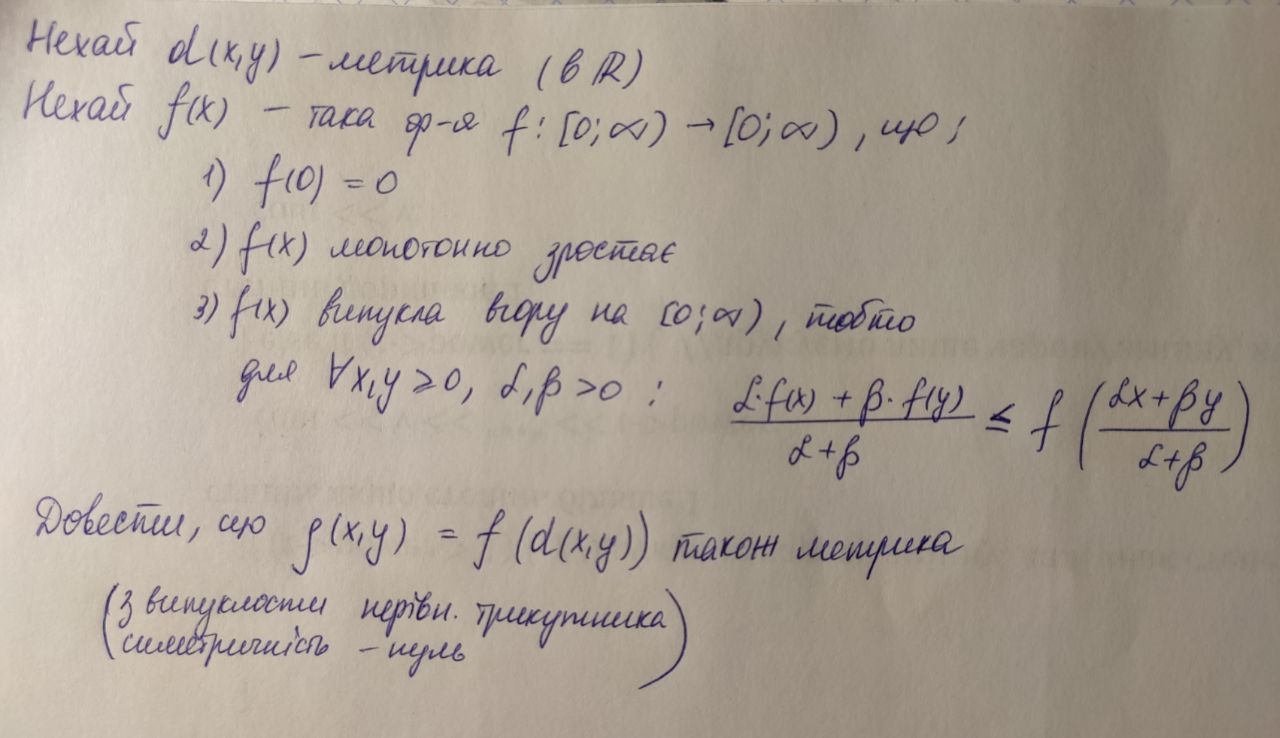 Нехай d(x,y) – метрика (в ℝ)
Нехай f(x) – така ф-я f: [0;∞) → [0;∞), що:
1) f(0) = 0
2) f(x) монотонно зростає
3) f(x) випукла вгору на [0;∞), тобто
для ∀x,y ≥ 0, α,β > 0 : (α·f(x) + β·f(y))/(α+β) ≤ f((αx+βy)/(α+β))
Довести, що ρ(x,y) = f(d(x,y)) також метрика
(З випуклости нерівн. трикутника
симетричність – нуль)